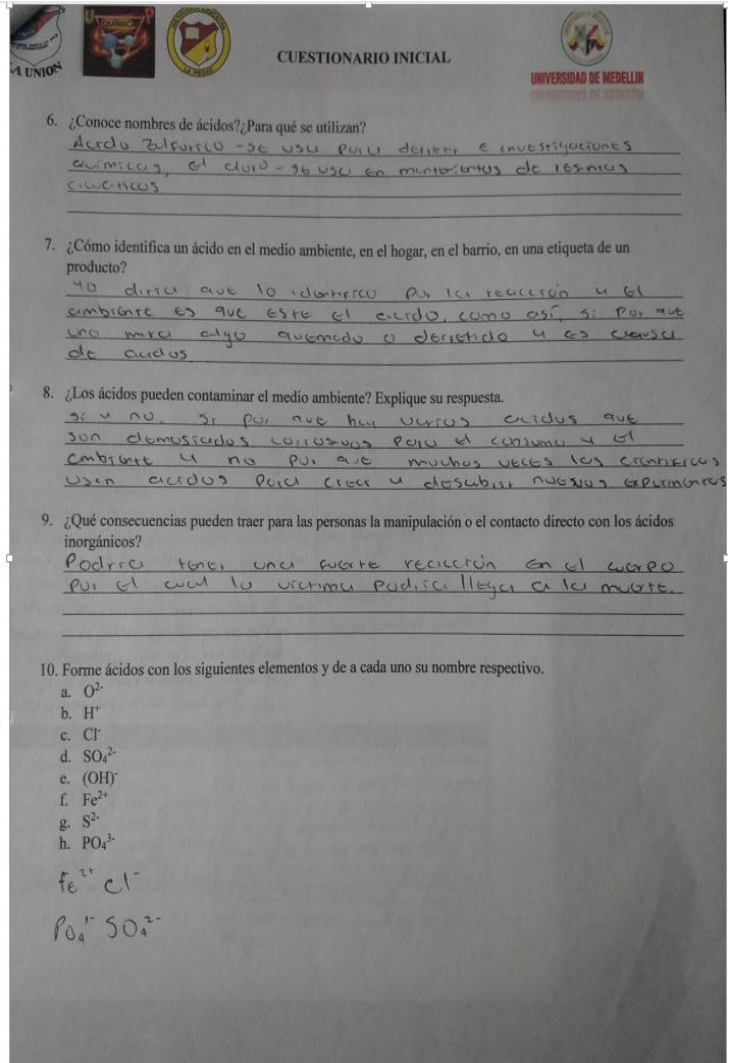 QUIMICA
LA UNION
LA PIEDAD
CUESTIONARIO INICIAL
UNIVERSIDAD DE MEDELLIN
6. ¿Conoce nombres de ácidos?¿Para qué se utilizan?
Acido Zulfurico - se usa para derretir e investigaciones
químicas, el cloro - se usa en de
7. ¿Cómo identifica un ácido en el medio ambiente, en el hogar, en el barrio, en una etiqueta de un
producto?
yo diria que lo identifico por la reacción y el
ambiente es que este el acido, como así, si por que
uno mira algo quemado o derretido y es causa
de acidos
8. ¿Los ácidos pueden contaminar el medio ambiente? Explique su respuesta.
si y no. si por que hay varios acidos que
son demasiados corrosivos para el consumo y el
ambiente y no por que muchas veces los cientificos
usan acidos para crear y descubrir nuevos experimentos
9. ¿Qué consecuencias pueden traer para las personas la manipulación o el contacto directo con los ácidos
inorgánicos?
Podria tener una fuerte reacción en el cuerpo
por el cual la victima podria llegar a la muerte.
10. Forme ácidos con los siguientes elementos y de a cada uno su nombre respectivo.
a. O²⁻
b. H⁺
c. Cl⁻
d. SO₄²⁻
e. (OH)⁻
f. Fe²⁺
g. S²⁻
h. PO₄³⁻
Fe²⁺ Cl⁻
PO₄³⁻ SO₄²⁻